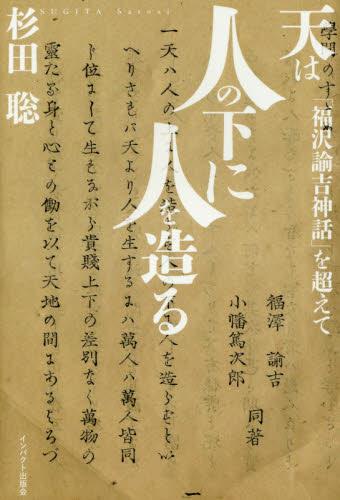 天は人の下に人造る
「福沢諭吉神話」を超えて
杉田 聡
SUGITA Satosi
學問のす
福澤 諭吉
小幡篤次郎
同著
一天ハ人の 人を造 人を造らずと以
へりされバ天より人を生するにハ萬人ハ萬人皆同
じ位にして生れながら貴賤上下の差別なく萬物の
靈たる身と心との働を以て天地の間にあるよろづ
一
インパクト出版会